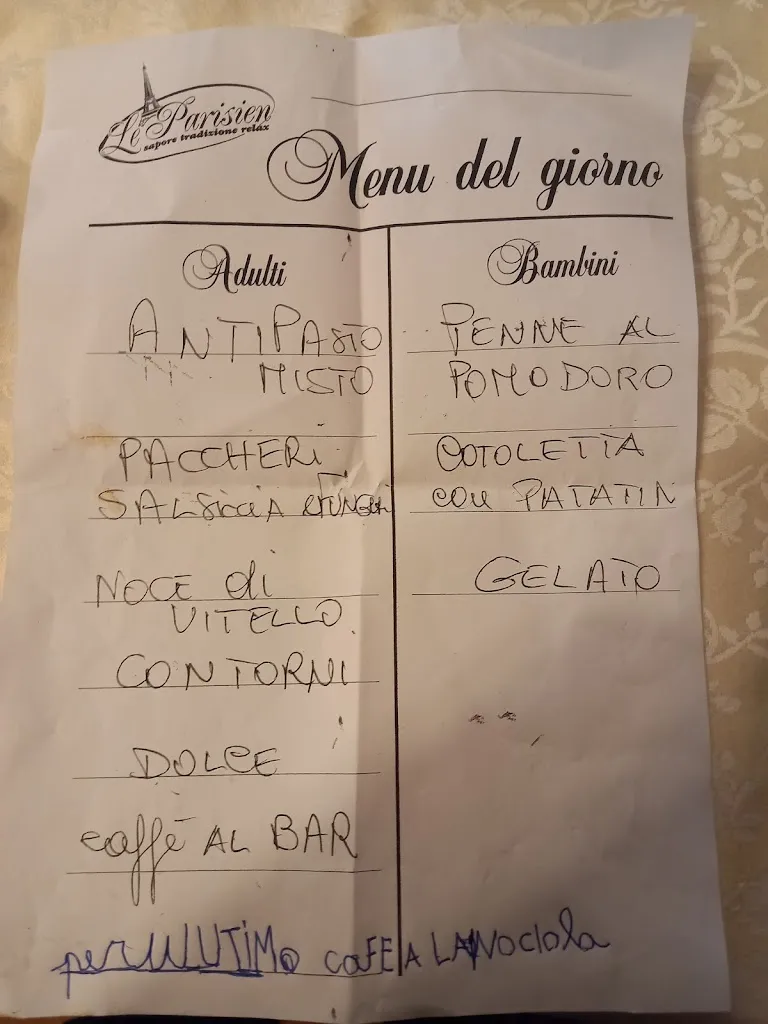 Le Parisien
sapore tradizione relax
Menu del giorno
Adulti
ANTIPASTO
MISTO
PACCHERI
SALSiCCiA e FUNGHi
NOCE di
VITELLO
CONTORNI
DOLCE
caffè AL BAR
Bambini
PENNE AL
POMODORO
COTOLETTA
con PATATIN
GELATO
per ULUTIMo caFE A LA Nociola